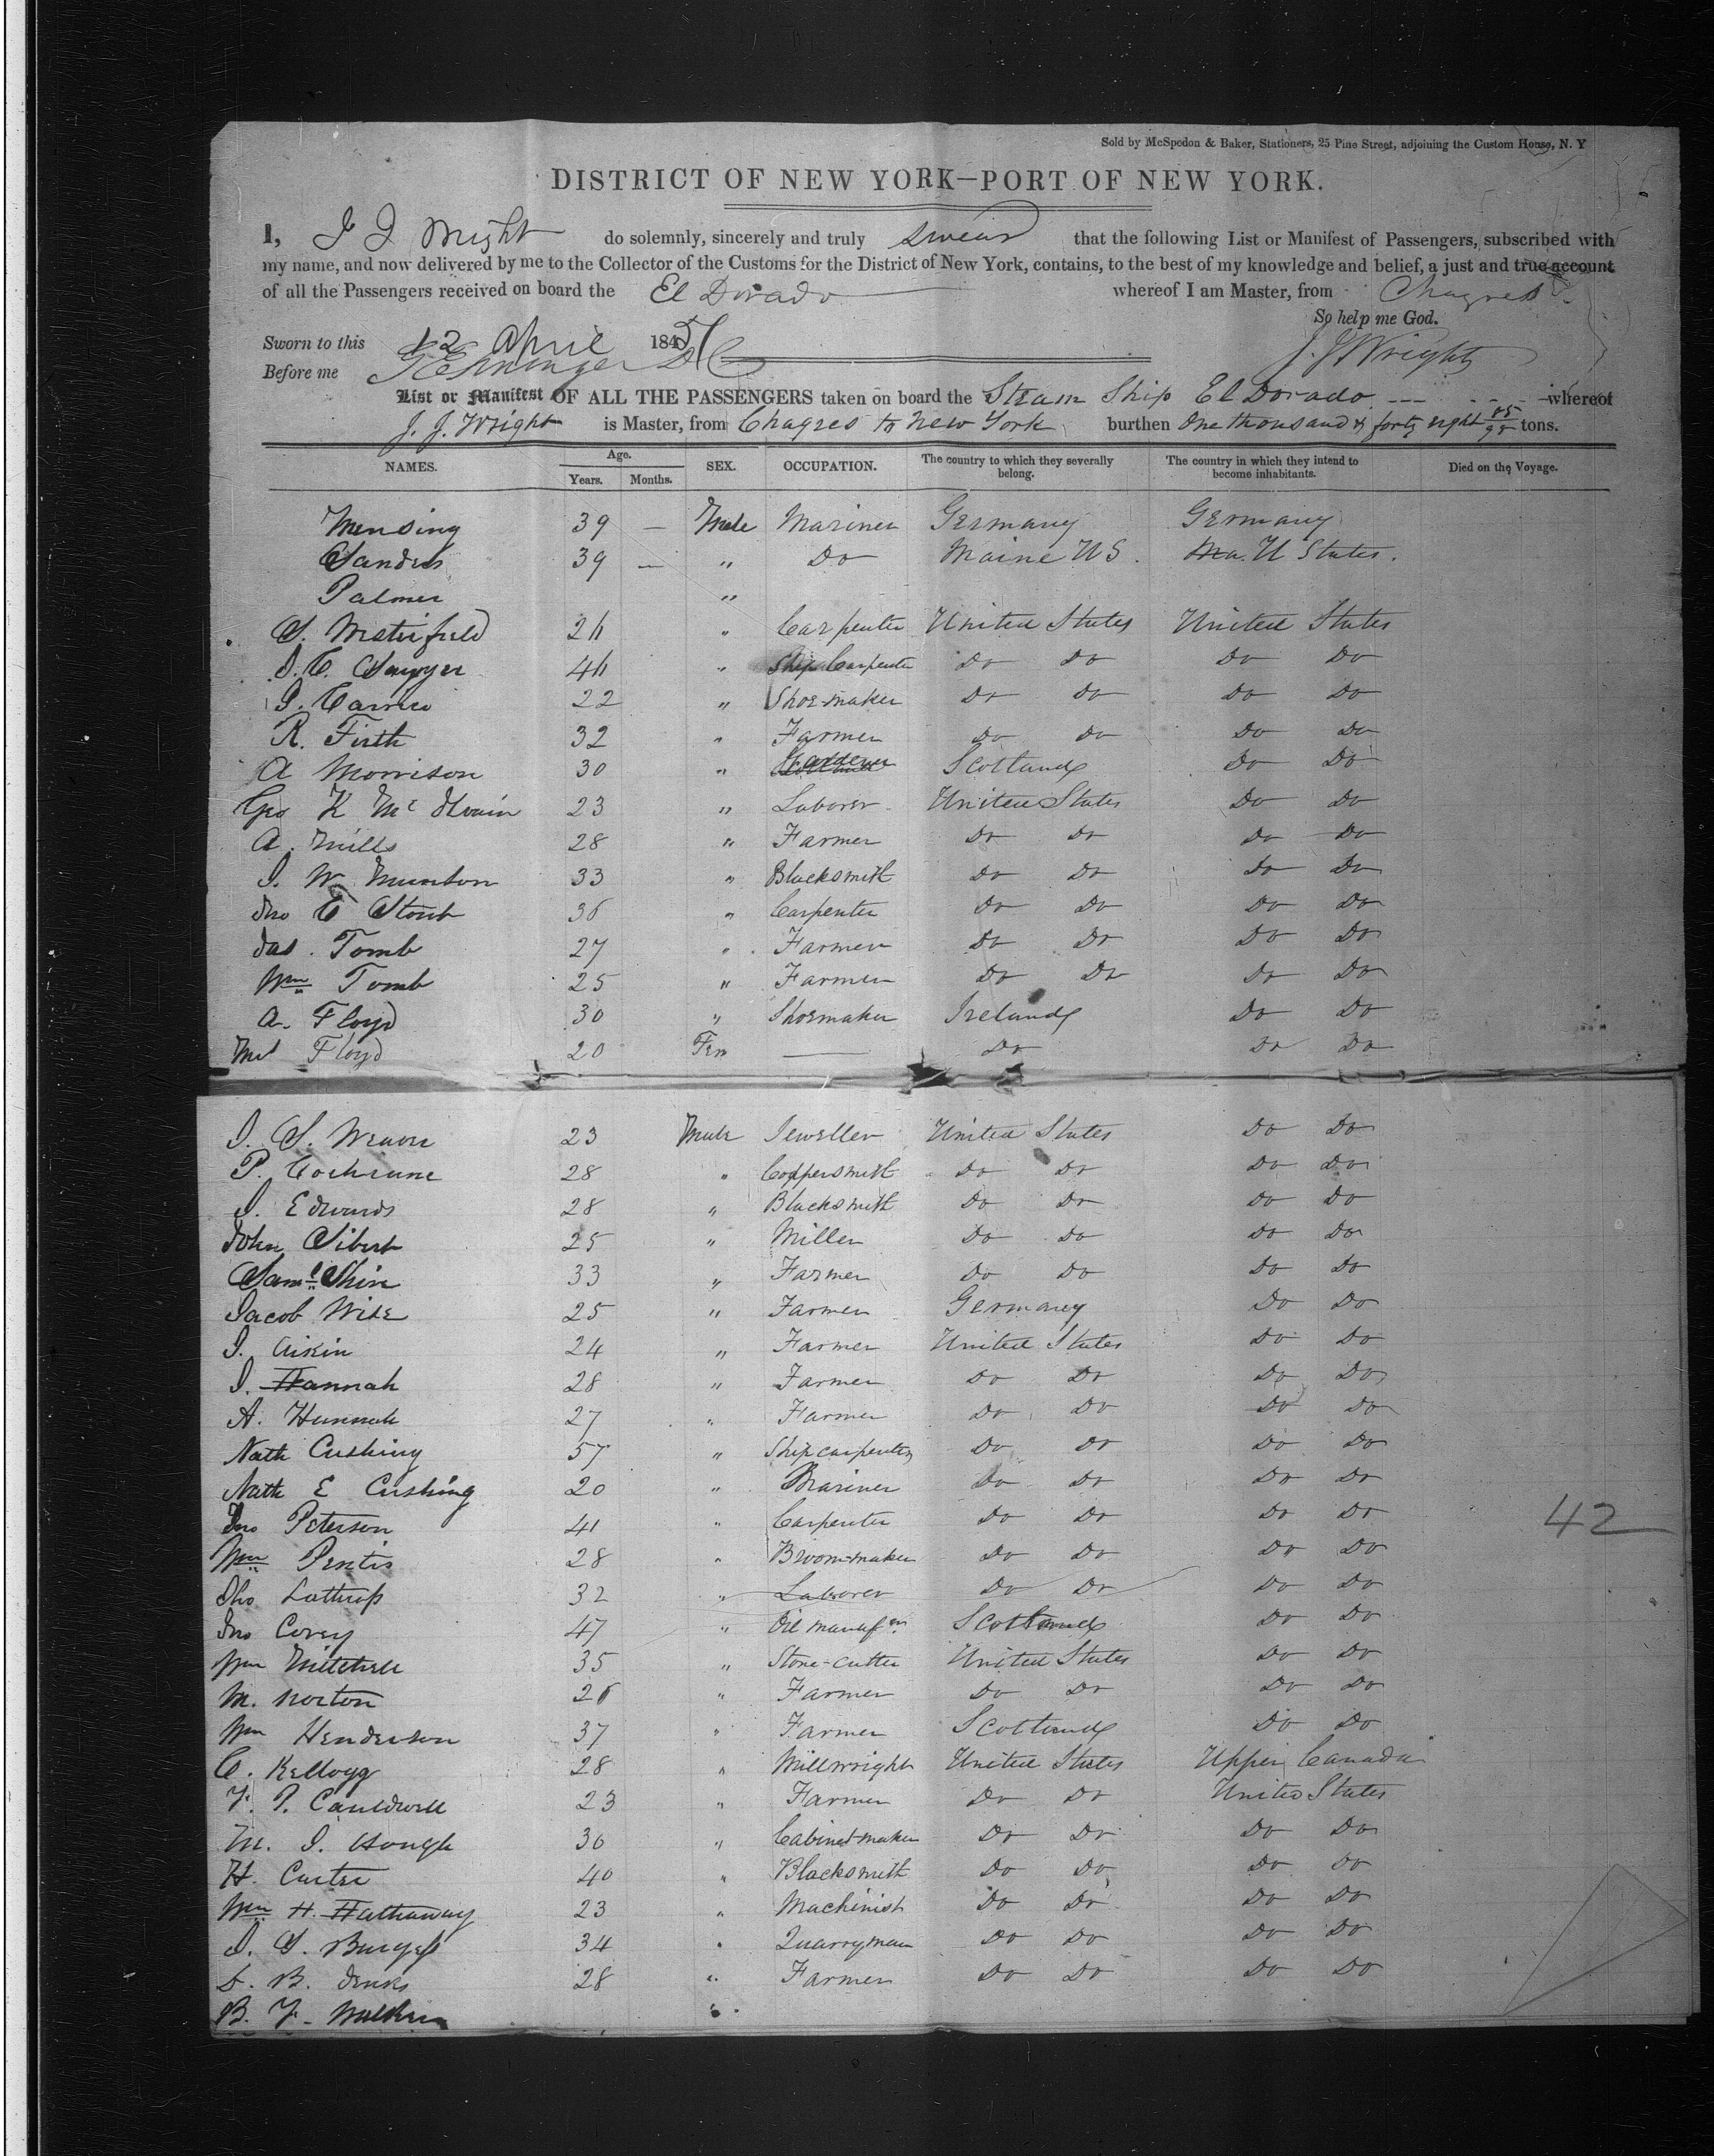 Sold by McSpedon & Baker, Stationers, 25 Pine Street, adjoining the Custom House, N. Y
DISTRICT OF NEW YORK—PORT OF NEW YORK.
I, J J Wright do solemnly, sincerely and truly swear that the following List or Manifest of Passengers, subscribed with
my name, and now delivered by me to the Collector of the Customs for the District of New York, contains, to the best of my knowledge and belief, a just and true account
of all the Passengers received on board the El Dorado whereof I am Master, from Chagres
So help me God.
Sworn to this 12 April 1851 J. J. Wright
Before me
List or Manifest OF ALL THE PASSENGERS taken on board the Steam Ship El Dorado whereof
J. J. Wright is Master, from Chagres to New York burthen One thousand & forty eight 85/95 tons.
NAMES. Age. Years. Months. SEX. OCCUPATION. The country to which they severally belong. The country in which they intend to become inhabitants. Died on the Voyage.
Mensing 39 — Male Mariner Germany Germany
Sanders 39 — " Do Maine US. Ma. U States.
Palmer "
S. Waterfield 26 " Carpenter United States United States
S. C. Sawyer 46 " Ship Carpenter Do Do Do Do
J. Carrico 22 " Shoe-maker Do Do Do Do
R. Firth 32 " Farmer Do Do Do Do
A Morrison 30 " Gardener Scotland Do Do
Geo K Mc Ilvain 23 " Laborer United States Do Do
A. Mills 28 " Farmer Do Do Do Do
J. W. Munson 33 " Blacksmith Do Do Do Do
Jno E Stout 36 " Carpenter Do Do Do Do
Jas. Tomb 27 " Farmer Do Do Do Do
Wm Tomb 25 " Farmer Do Do Do Do
A. Floyd 30 " Shoemaker Ireland Do Do
Mrs Floyd 20 Fem — Do Do Do
J. S. Weaver 23 Male Jeweller United States Do Do
P. Cochrane 28 " Coppersmith Do Do Do Do
J. Edwards 28 " Blacksmith Do Do Do Do
John Sibert 25 " Miller Do Do Do Do
Saml Shin 33 " Farmer Do Do Do Do
Jacob Wise 25 " Farmer Germany Do Do
J. Aikin 24 " Farmer United States Do Do
J. Hannah 28 " Farmer Do Do Do Do
A. Hannah 27 " Farmer Do Do Do Do
Nath Cushing 57 " Ship carpenter Do Do Do Do
Nath E Cushing 20 " Mariner Do Do Do Do
Jno Peterson 41 " Carpenter Do Do Do Do
42
Wm Pentis 28 " Broom-maker Do Do Do Do
Tho Lathrop 32 " Laborer Do Do Do Do
Jno Covey 47 " Oil manufr. Scotland Do Do
Wm Mitchell 35 " Stone-cutter United States Do Do
M. Norton 26 " Farmer Do Do Do Do
Wm Henderson 37 " Farmer Scotland Do Do
C. Kellogg 28 " Millwright United States Upper Canada
F. P. Cauldwell 23 " Farmer Do Do United States
M. J. Hough 30 " Cabinet-maker Do Do Do Do
H. Carter 40 " Blacksmith Do Do Do Do
Wm H. Hathaway 23 " Machinist Do Do Do Do
J. S. Burgess 34 " Quarryman Do Do Do Do
L. B. Jenks 28 " Farmer Do Do Do Do
B. F. "